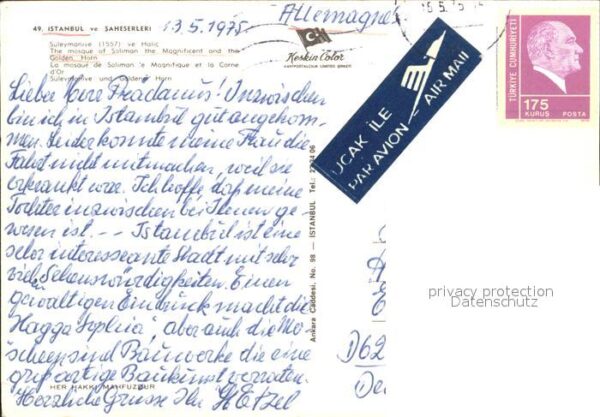 49. ISTANBUL ve ŞAHESERLERİ
Süleymaniye (1557) ve Haliç
The mosque of Soliman the Magnificent and the
Golden Horn
La mosquée de Soliman le Magnifique et la Corne
d'Or
Süleymaniye und Golden Horn
13.5.1975
Allemagne
Keskin Color
KARTPOSTALCILIK LIMITED ŞİRKETİ
UÇAK İLE
PAR AVION - AIR MAIL
TÜRKİYE CUMHURİYETİ
175
KURUŞ POSTA
Lieber Herr! Inzwischen
bin ich in Istambul gut angekom-
men. Leider konnte meine Frau die
Fahrt nicht mitmachen, weil sie
erkrankt war. Ich hoffe, daß meine
Tochter inzwischen bei Ihnen ge-
wesen ist. -- Istambul ist eine
sehr interessante Stadt mit sehr
viel Sehenswürdigkeiten. Einen
gewaltigen Eindruck macht die
"Hagga Sophia", aber auch die Mo-
scheen sind Bauwerke die eine
großartige Baukunst verraten.
Herzliche Grüsse Ihr
HER HAKKI MAHFUZDUR
Ankara Caddesi, No. 98 — İSTANBUL Tel.:
D62
privacy protection
Datenschutz